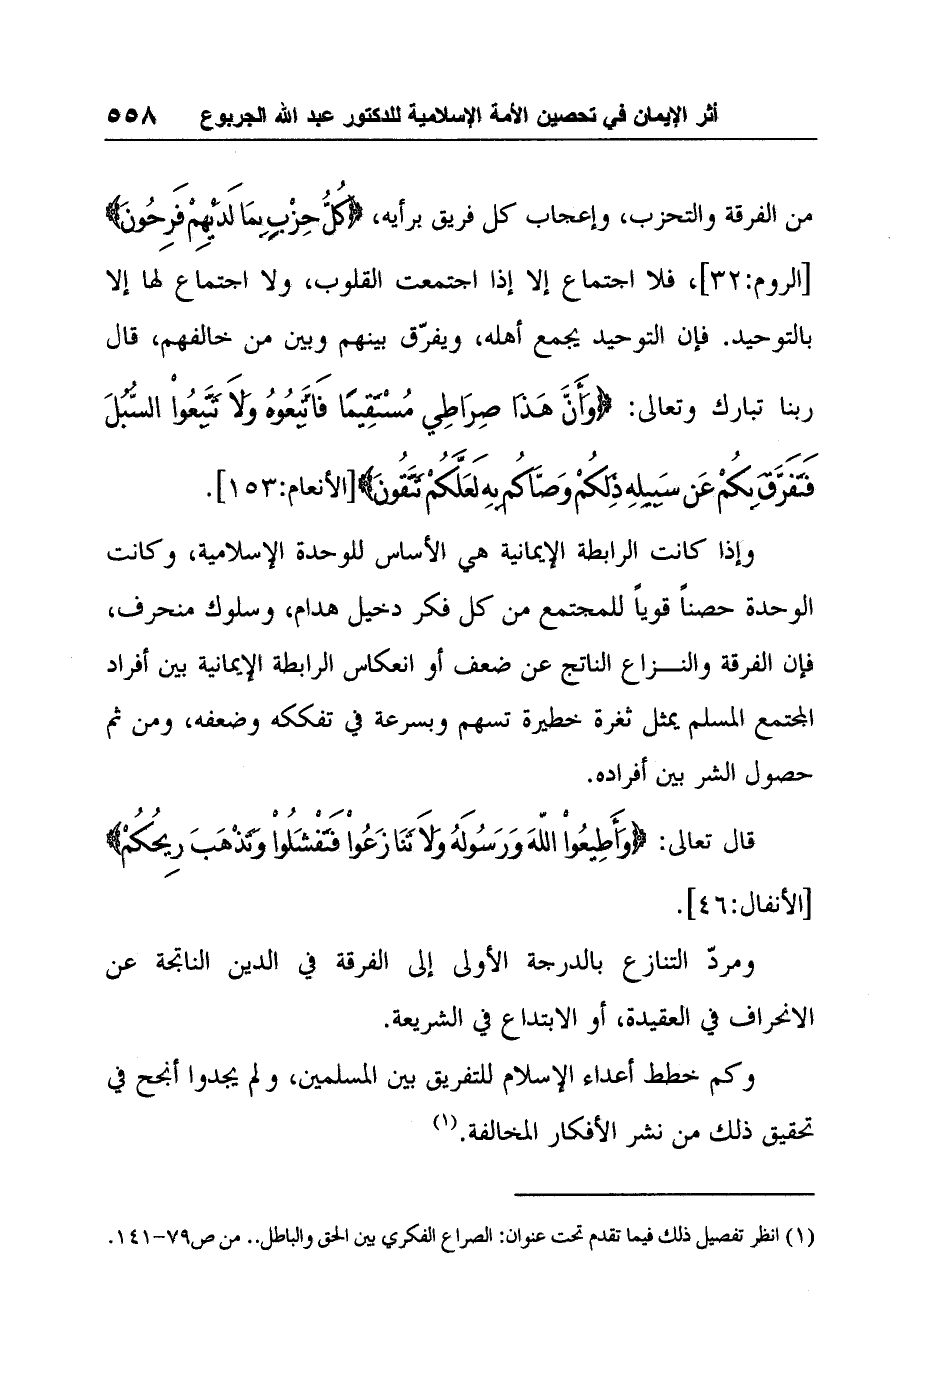 أثر الإيمان في تحصين الأمة الإسلامية للدكتور عبد الله الجربوع ٥٥٨
من الفرقة والتحزب، وإعجاب كل فريق برأيه، ﴿كُلُّ حِزْبٍ بِمَا لَدَيْهِمْ فَرِحُونَ﴾
[الروم:٣٢]، فلا اجتماع إلا إذا اجتمعت القلوب، ولا اجتماع لها إلا
بالتوحيد. فإن التوحيد يجمع أهله، ويفرّق بينهم وبين من خالفهم، قال
ربنا تبارك وتعالى: ﴿وَأَنَّ هَذَا صِرَاطِي مُسْتَقِيمًا فَاتَّبِعُوهُ وَلَا تَتَّبِعُواْ السُّبُلَ
فَتَفَرَّقَ بِكُمْ عَن سَبِيلِهِ ذَلِكُمْ وَصَّاكُم بِهِ لَعَلَّكُمْ تَتَّقُونَ﴾[الأنعام:١٥٣].
وإذا كانت الرابطة الإيمانية هي الأساس للوحدة الإسلامية، وكانت
الوحدة حصناً قوياً للمجتمع من كل فكر دخيل هدام، وسلوك منحرف،
فإن الفرقة والنـــزاع الناتج عن ضعف أو انعكاس الرابطة الإيمانية بين أفراد
المجتمع المسلم يمثل ثغرة خطيرة تسهم وبسرعة في تفككه وضعفه، ومن ثم
حصول الشر بين أفراده.
قال تعالى: ﴿وَأَطِيعُواْ اللّهَ وَرَسُولَهُ وَلَا تَنَازَعُواْ فَتَفْشَلُواْ وَتَذْهَبَ رِيحُكُمْ﴾
[الأنفال:٤٦].
ومردّ التنازع بالدرجة الأولى إلى الفرقة في الدين الناتجة عن
الانحراف في العقيدة، أو الابتداع في الشريعة.
وكم خطط أعداء الإسلام للتفريق بين المسلمين، ولم يجدوا أنجح في
تحقيق ذلك من نشر الأفكار المخالفة.(١)
(١) انظر تفصيل ذلك فيما تقدم تحت عنوان: الصراع الفكري بين الحق والباطل.. من ص٧٩-١٤١.